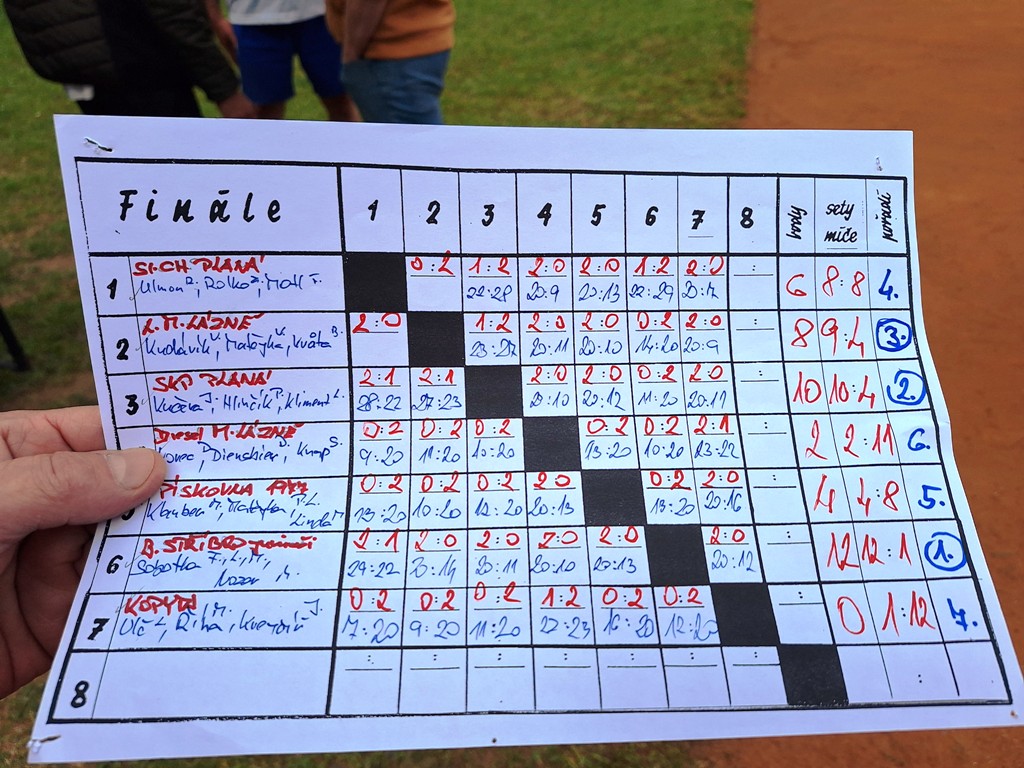 Finále 1 2 3 4 5 6 7 8 body sety míče pořadí
1 SI.CH PLANÁ 0:2 1:2 2:0 2:0 1:2 2:0 : 6 8:8 4.
22:28 20:9 20:13 22:29 20:7
2 L.M.LÁZNĚ 2:0 1:2 2:0 2:0 0:2 2:0 : 8 9:4 3.
Kudlávik, Matějka, Květa 23:27 20:11 20:10 14:20 20:9
3 SKP PLANÁ 2:1 2:1 2:0 2:0 0:2 2:0 : 10 10:4 2.
Kučera J., Hlinčík P., Kliment L. 28:22 27:23 20:10 20:12 11:20 20:11
Diesel M.LÁZNĚ 0:2 0:2 0:2 0:2 0:2 2:1 : 2 2:11 6.
Dienstbier, Knap S. 9:20 11:20 10:20 13:20 10:20 23:22
PÍSKOVNA 0:2 0:2 0:2 2:0 0:2 2:0 : 4 4:8 5.
13:20 10:20 12:20 20:13 13:20 20:16
Linda
6 B. STŘÍBRO 2:1 2:0 2:0 2:0 2:0 2:0 : 12 12:1 1.
Sobotka 29:22 20:14 20:11 20:10 20:13 20:12
7 KOPYTA 0:2 0:2 0:2 1:2 0:2 0:2 : 0 1:12 7.
Říha 7:20 9:20 11:20 22:23 16:20 12:20
8 : : : : : : : :